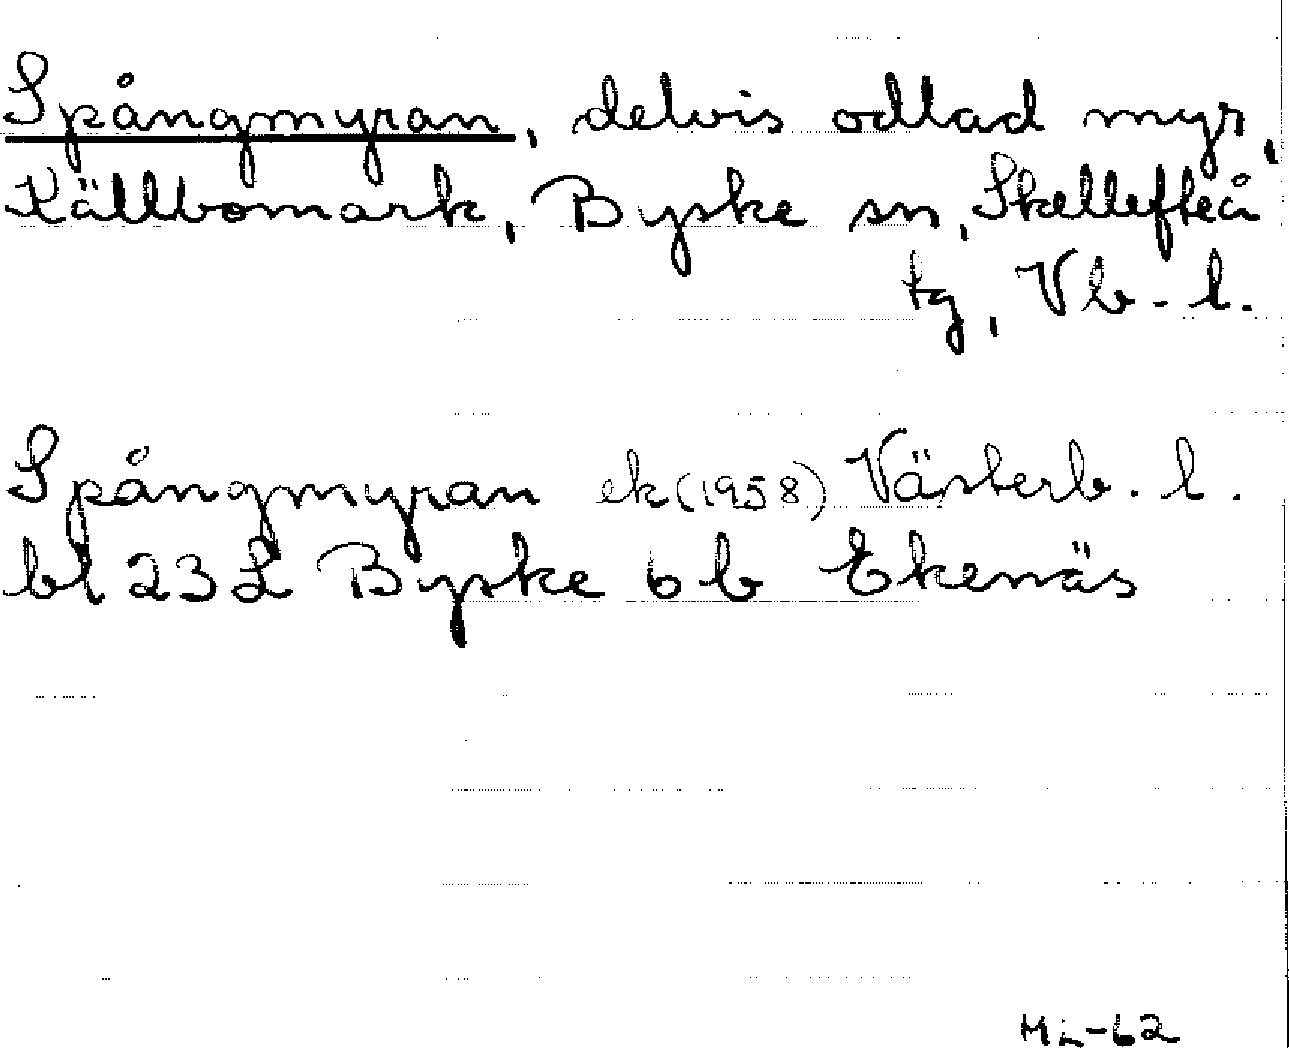 Spångmyran, delvis odlad myr,
Källbomark, Byske sn, Skellefteå
tg, Vb-l.
Spångmyran ek (1958) Västerb. l.
bl 23 L Byske 6 b Ekenäs
ML-62